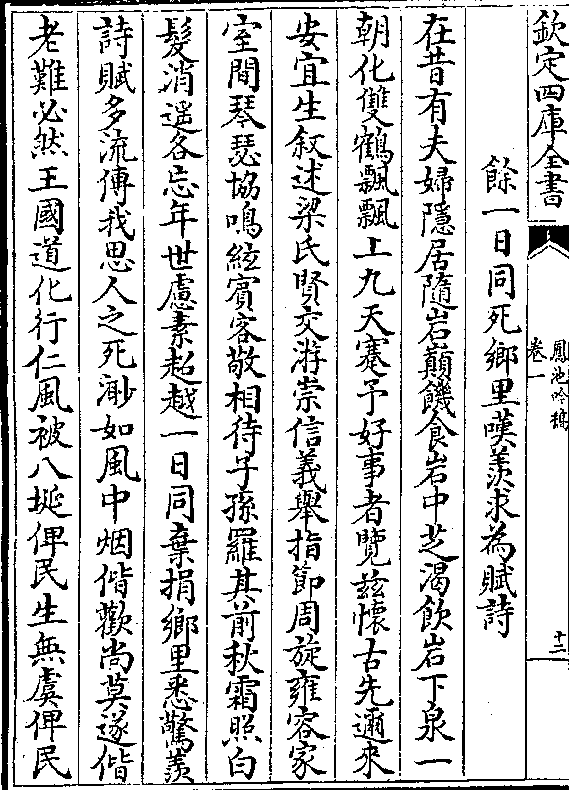 欽定四庫全書
鳳池吟稿
卷一
十二
餘一日同死鄉里嘆羨求為賦詩
在昔有夫婦隱居隨岩巔饑食岩中芝渴飲岩下泉一
朝化雙鶴飄飄上九天蹇予好事者覽茲懷古先邇來
安宜生叙述梁氏賢交游崇信義舉指節周旋雍容家
室間琴瑟協鳴絃賓客敬相待子孫羅其前秋霜照白
髮消遥各忘年世慮素超越一日同棄捐鄉里悉驚羨
詩賦多流傳我思人之死渺如風中烟偕歡尚莫遂偕
老難必然王國道化行仁風被八埏俾民生無虞俾民